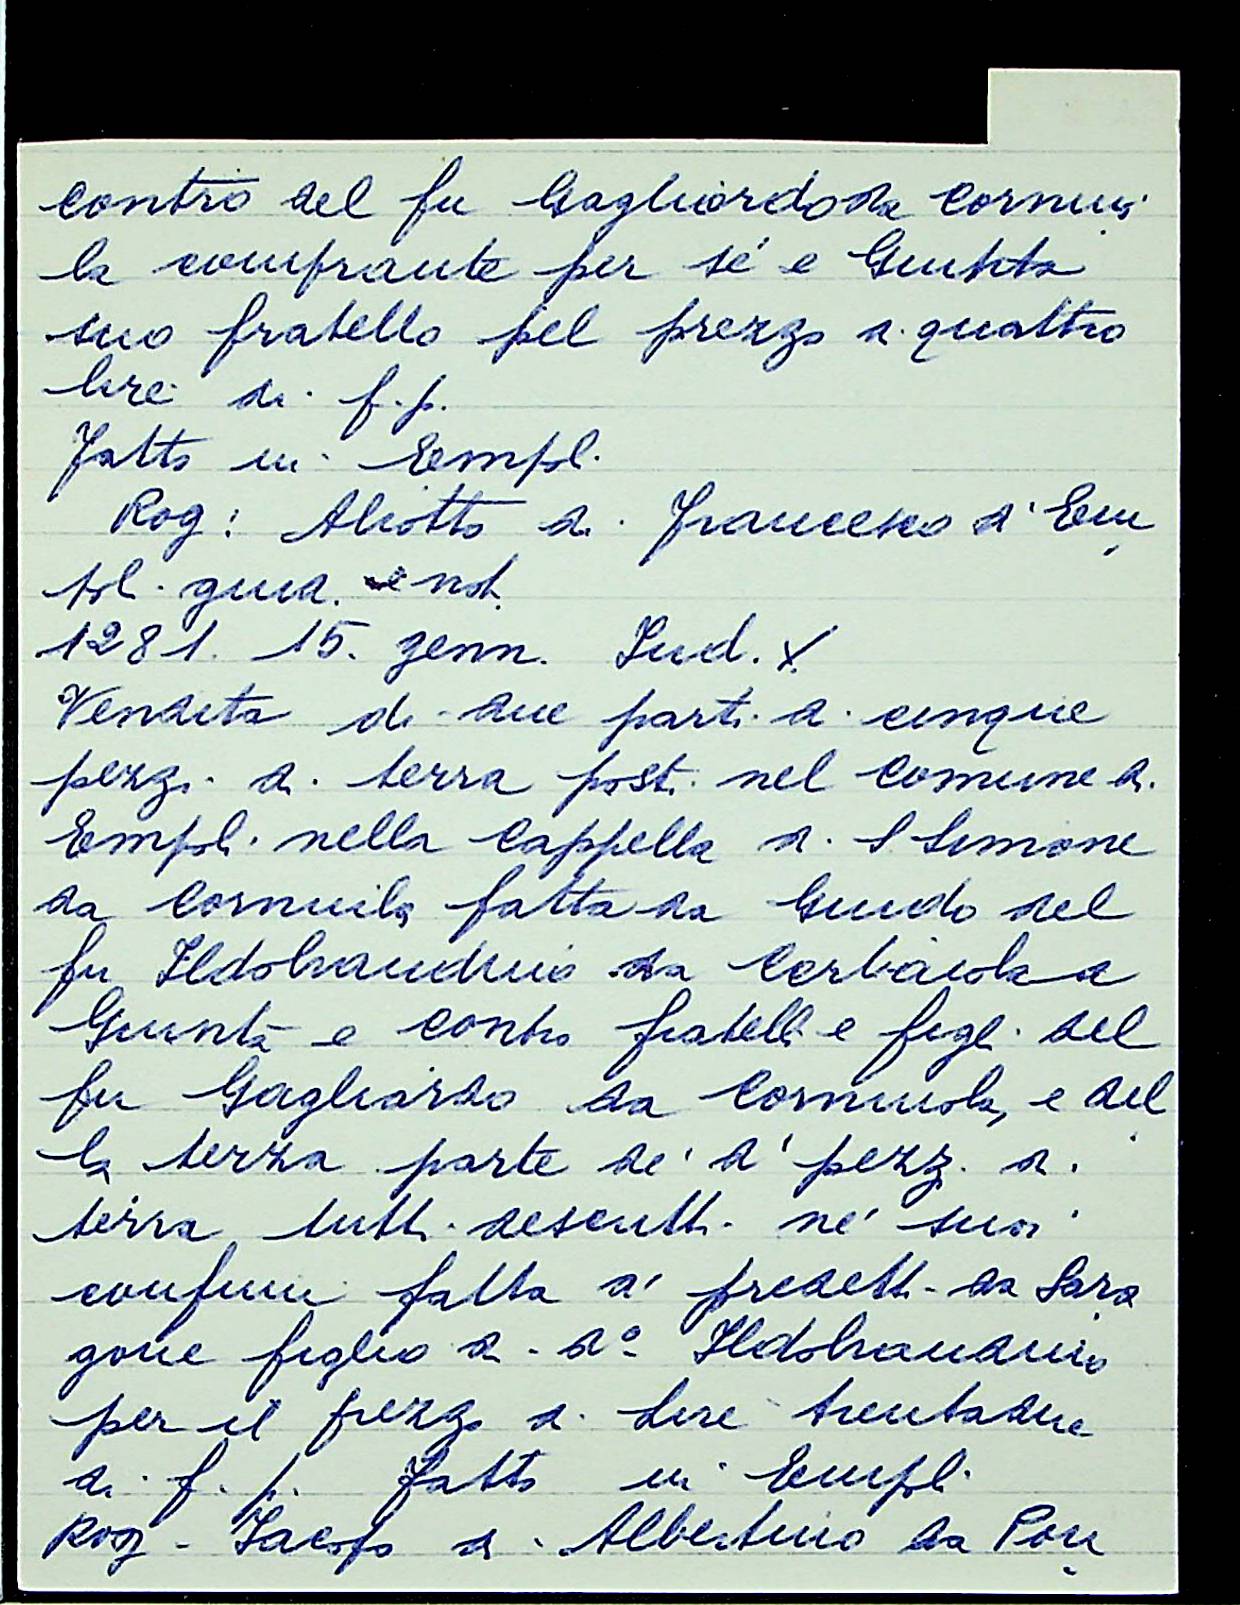 contro del fu Gagliardo da Cornuo
la comprante per sé e Giunta
suo fratello pel prezzo di quattro
lire di f. p.
Fatto in Empoli
Rog: Aliotto di Francesco d' Em
poli giud. e not.
1281. 15. genn. Ind. X
Vendita di due parti di cinque
pezzi di terra posti nel comune di
Empoli nella Cappella di S Simone
da Corniola fatta da Guido del
fu Ildobrandino da Corbaiola a
Giunta e contro fratelli e figli del
fu Gagliardo da Corniuola, e del
la terza parte de' d' pezzi di
terra tutti descritti ne' suoi
confini fatta a' predetti da Sara
gone figlio di do Ildobrandino
per il prezzo di lire trentadue
di f. p. Fatto in Empoli
Rog - Jacopo di Albertino da Pon